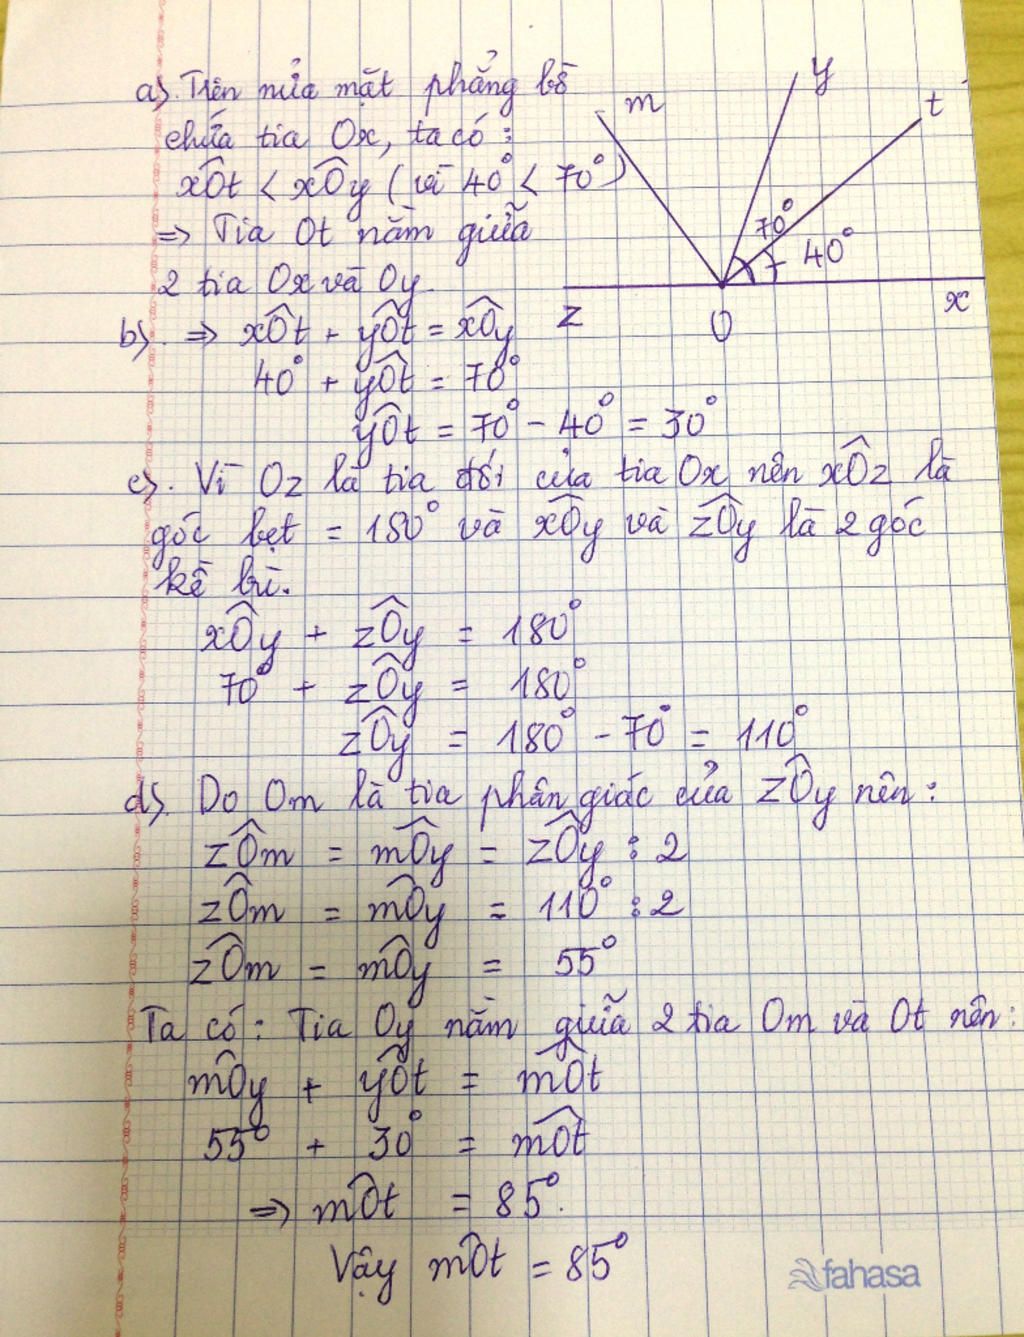 a). Trên nửa mặt phẳng bờ
chứa tia Ox, ta có :
xÔt < xÔy ( vì 40° < 70° )
=> Tia Ot nằm giữa
2 tia Ox và Oy.
m
y
t
70°
40°
z
O
x
b). => xÔt + yÔt = xÔy
40° + yÔt = 70°
yÔt = 70° - 40° = 30°
c). Vì Oz là tia đối của tia Ox nên xÔz là
góc bẹt = 180° và xÔy và zÔy là 2 góc
kề bù.
xÔy + zÔy = 180°
70° + zÔy = 180°
zÔy = 180° - 70° = 110°
d). Do Om là tia phân giác của zÔy nên :
zÔm = mÔy = zÔy : 2
zÔm = mÔy = 110° : 2
zÔm = mÔy = 55°
Ta có : Tia Oy nằm giữa 2 tia Om và Ot nên :
mÔy + yÔt = mÔt
55° + 30° = mÔt
=> mÔt = 85°.
Vậy mÔt = 85°
fahasa